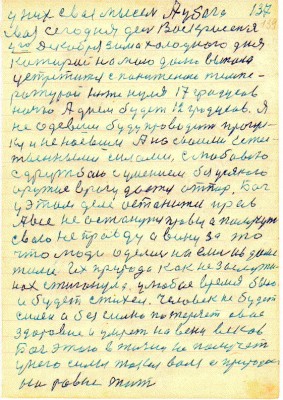 у них своя мысель А у Бога 137
моя сегодня ден Воскресеня
Декабря зима холодного дня
которой на мою долю выпала
встретитися с понижение темпе-
ратурой ниже нуля 17 градусов
ночю А днем будет 12 градусов. Я
не одевши буду проводит
и не наевши А на своими есте-
ственными силами, с любовю
с дружбаю с умением без всяково
оружие врагу давать отпор. Бог
у этом деле останится прав
А все не останутся правы а получут
свою неправду а вину за то
что люди оделися наелися в доме
жили их природа как не заслужи-
ных стигнула, у любая время было
и будет стихея. Человек не будет
силен а без сило потеряет свае
здоровие и умрет на веки веков
Бог этого в жизни не получет
у него силы такая воля с природою
на равне жит